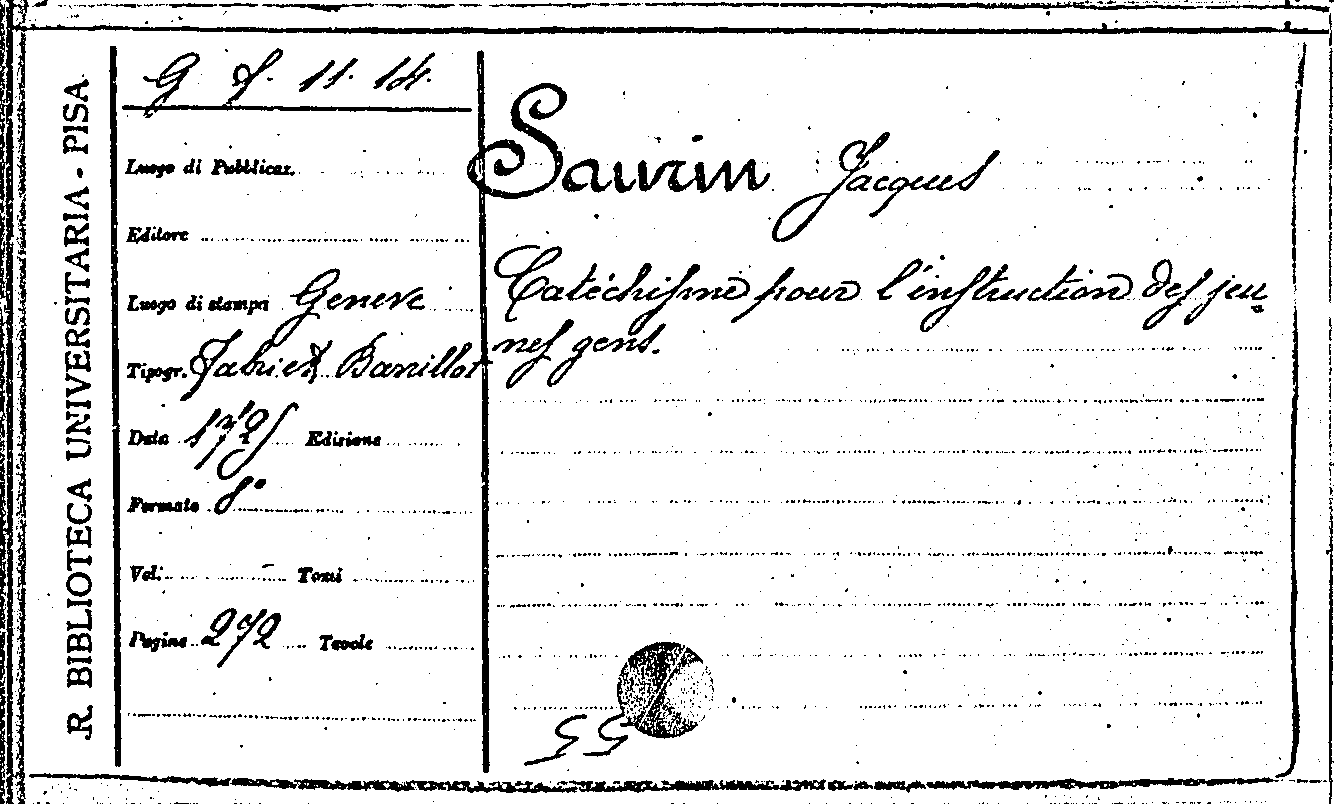 R. BIBLIOTECA UNIVERSITARIA - PISA
G f. 11. 14.
Luogo di Pubblicaz.
Editore
Luogo di stampa Geneve
Tipogr. Fabri et Barrillot
Data 1725 Edizione
Formato 8°
Vol. - Tomi
Pagine 272 Tavole
Saurin Jacques
Catéchisme pour l'instruction des jeu-
nes gens.
55